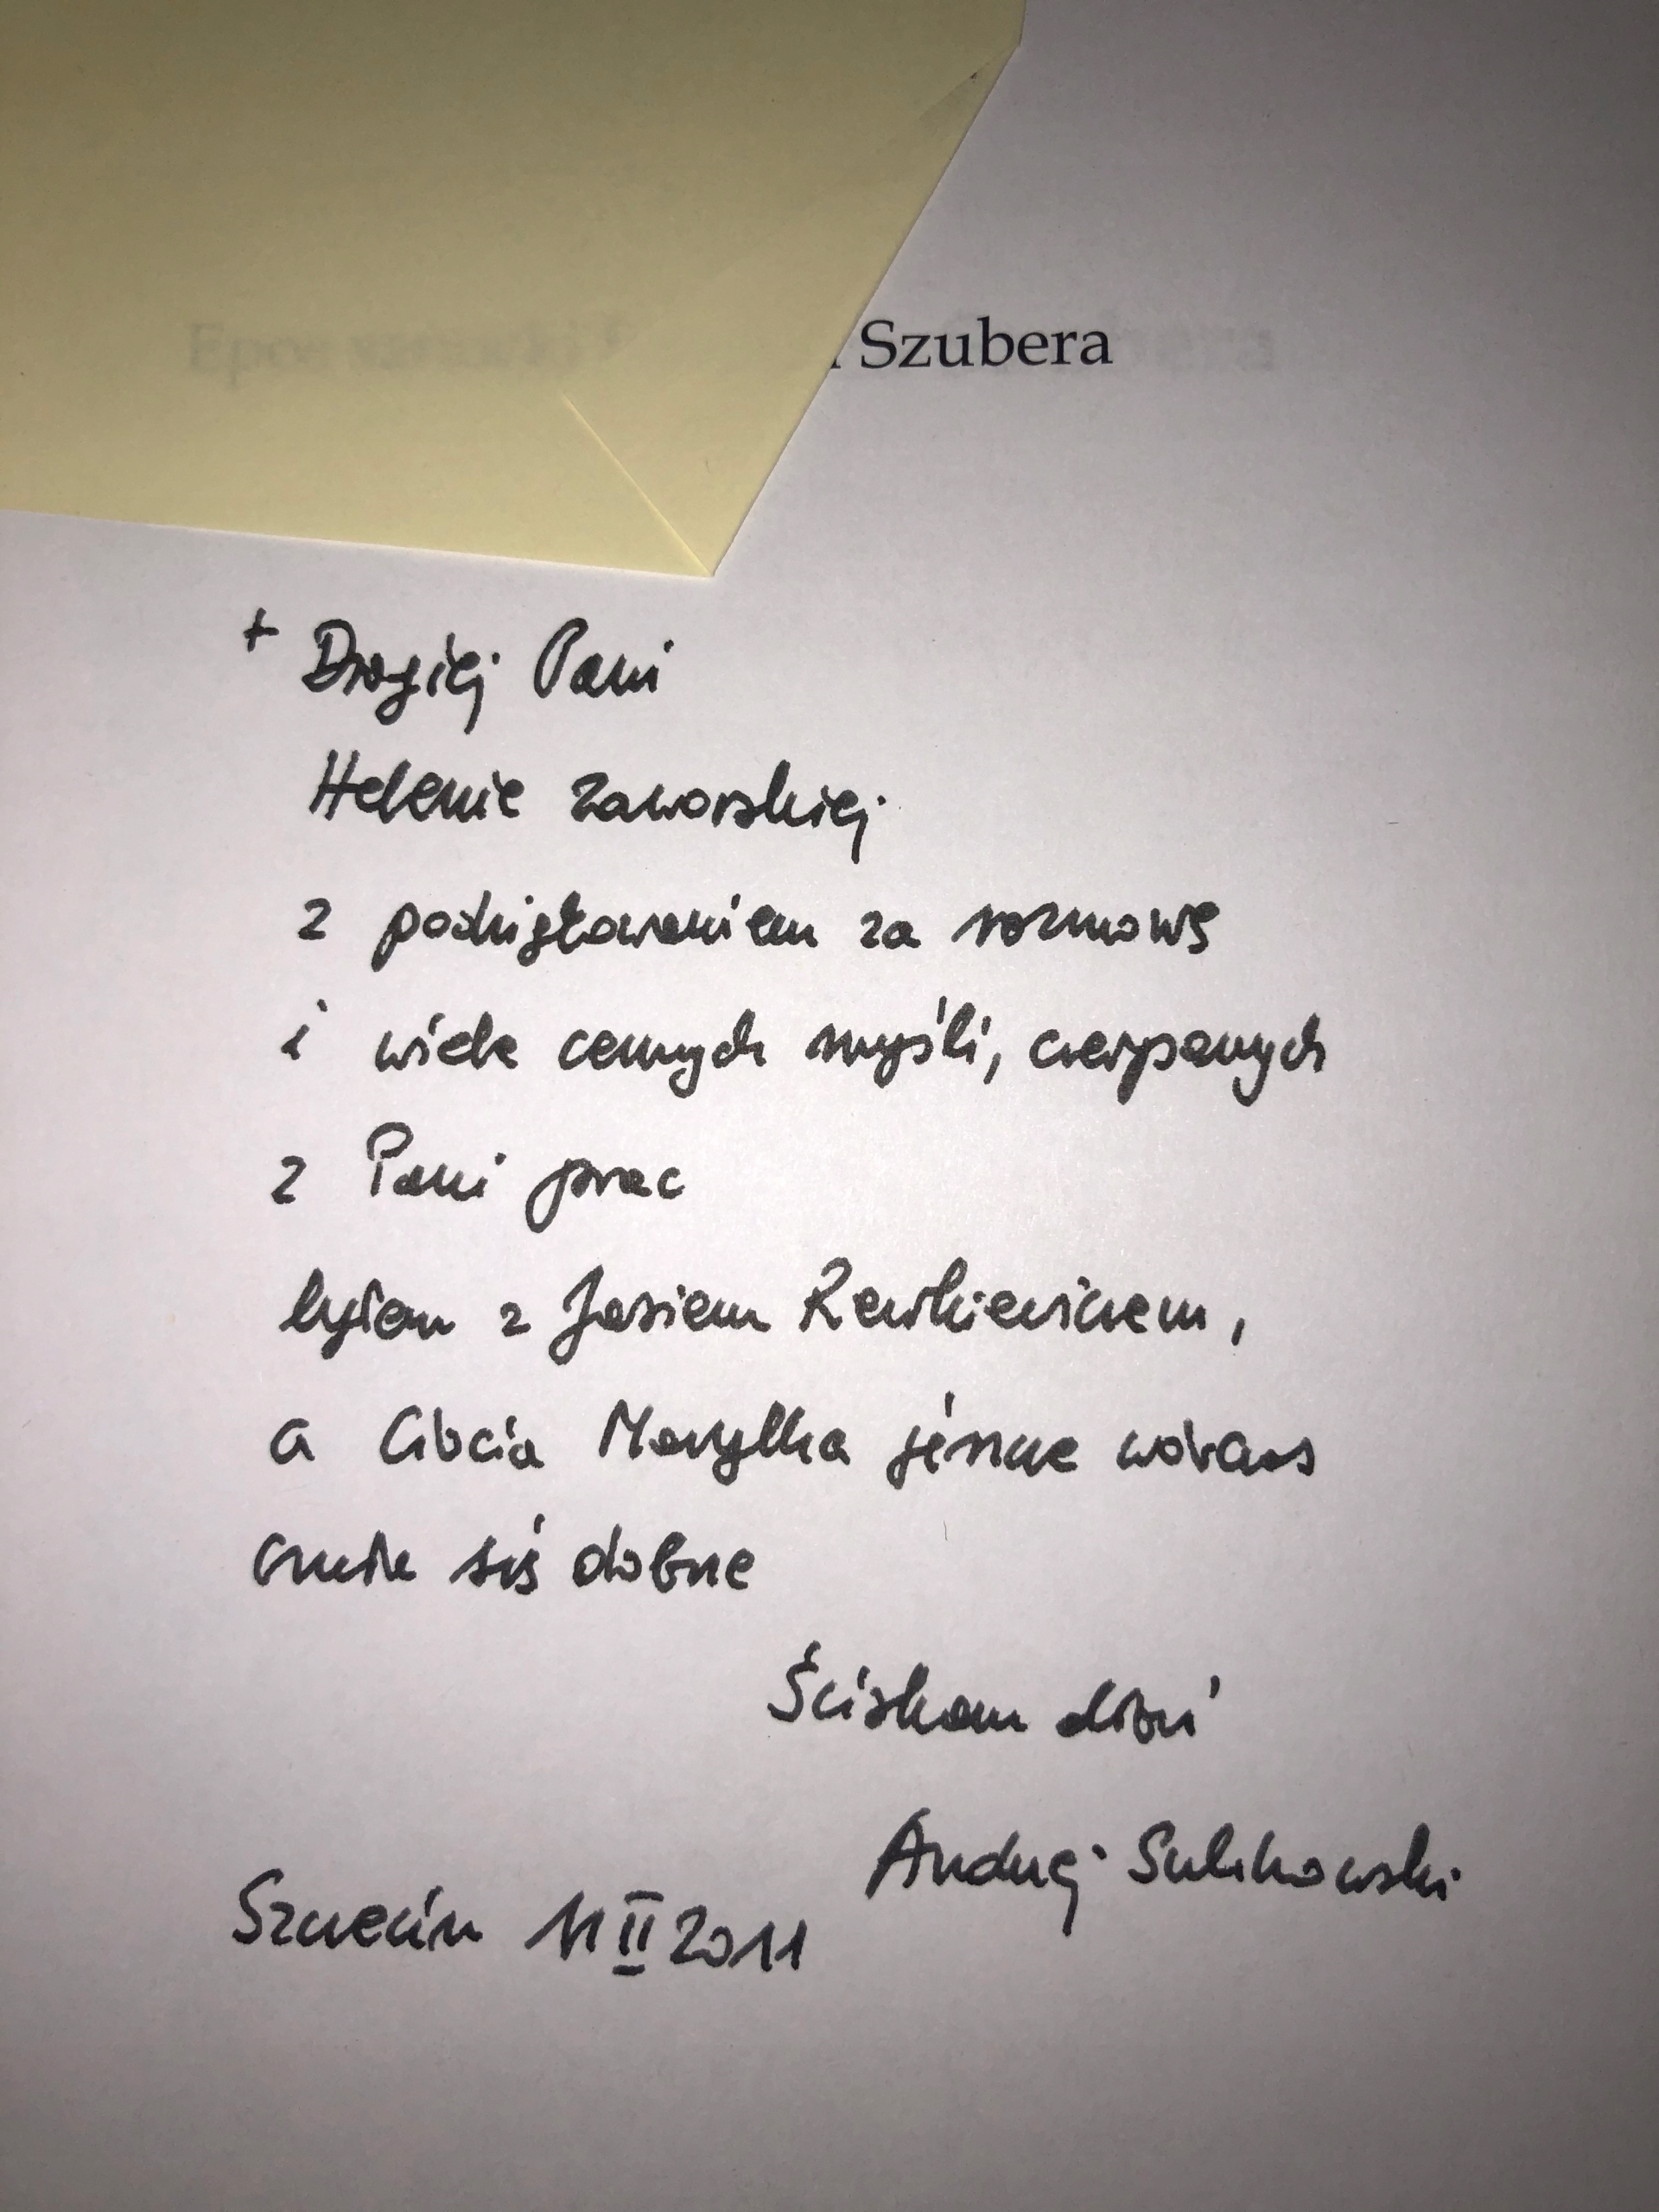 Szubera
+ Drogiej Pani
Helenie Zaworskiej
z podziękowaniem za rozmowę
i wiele cennych myśli, czerpanych
z Pani prac
byłem z Jasiem
a Ciocia Marylka jeszcze wówczas
czuła się dobrze
Ściskam dłoń
Andrzej Sulikowski
Szczecin 11 II 2011